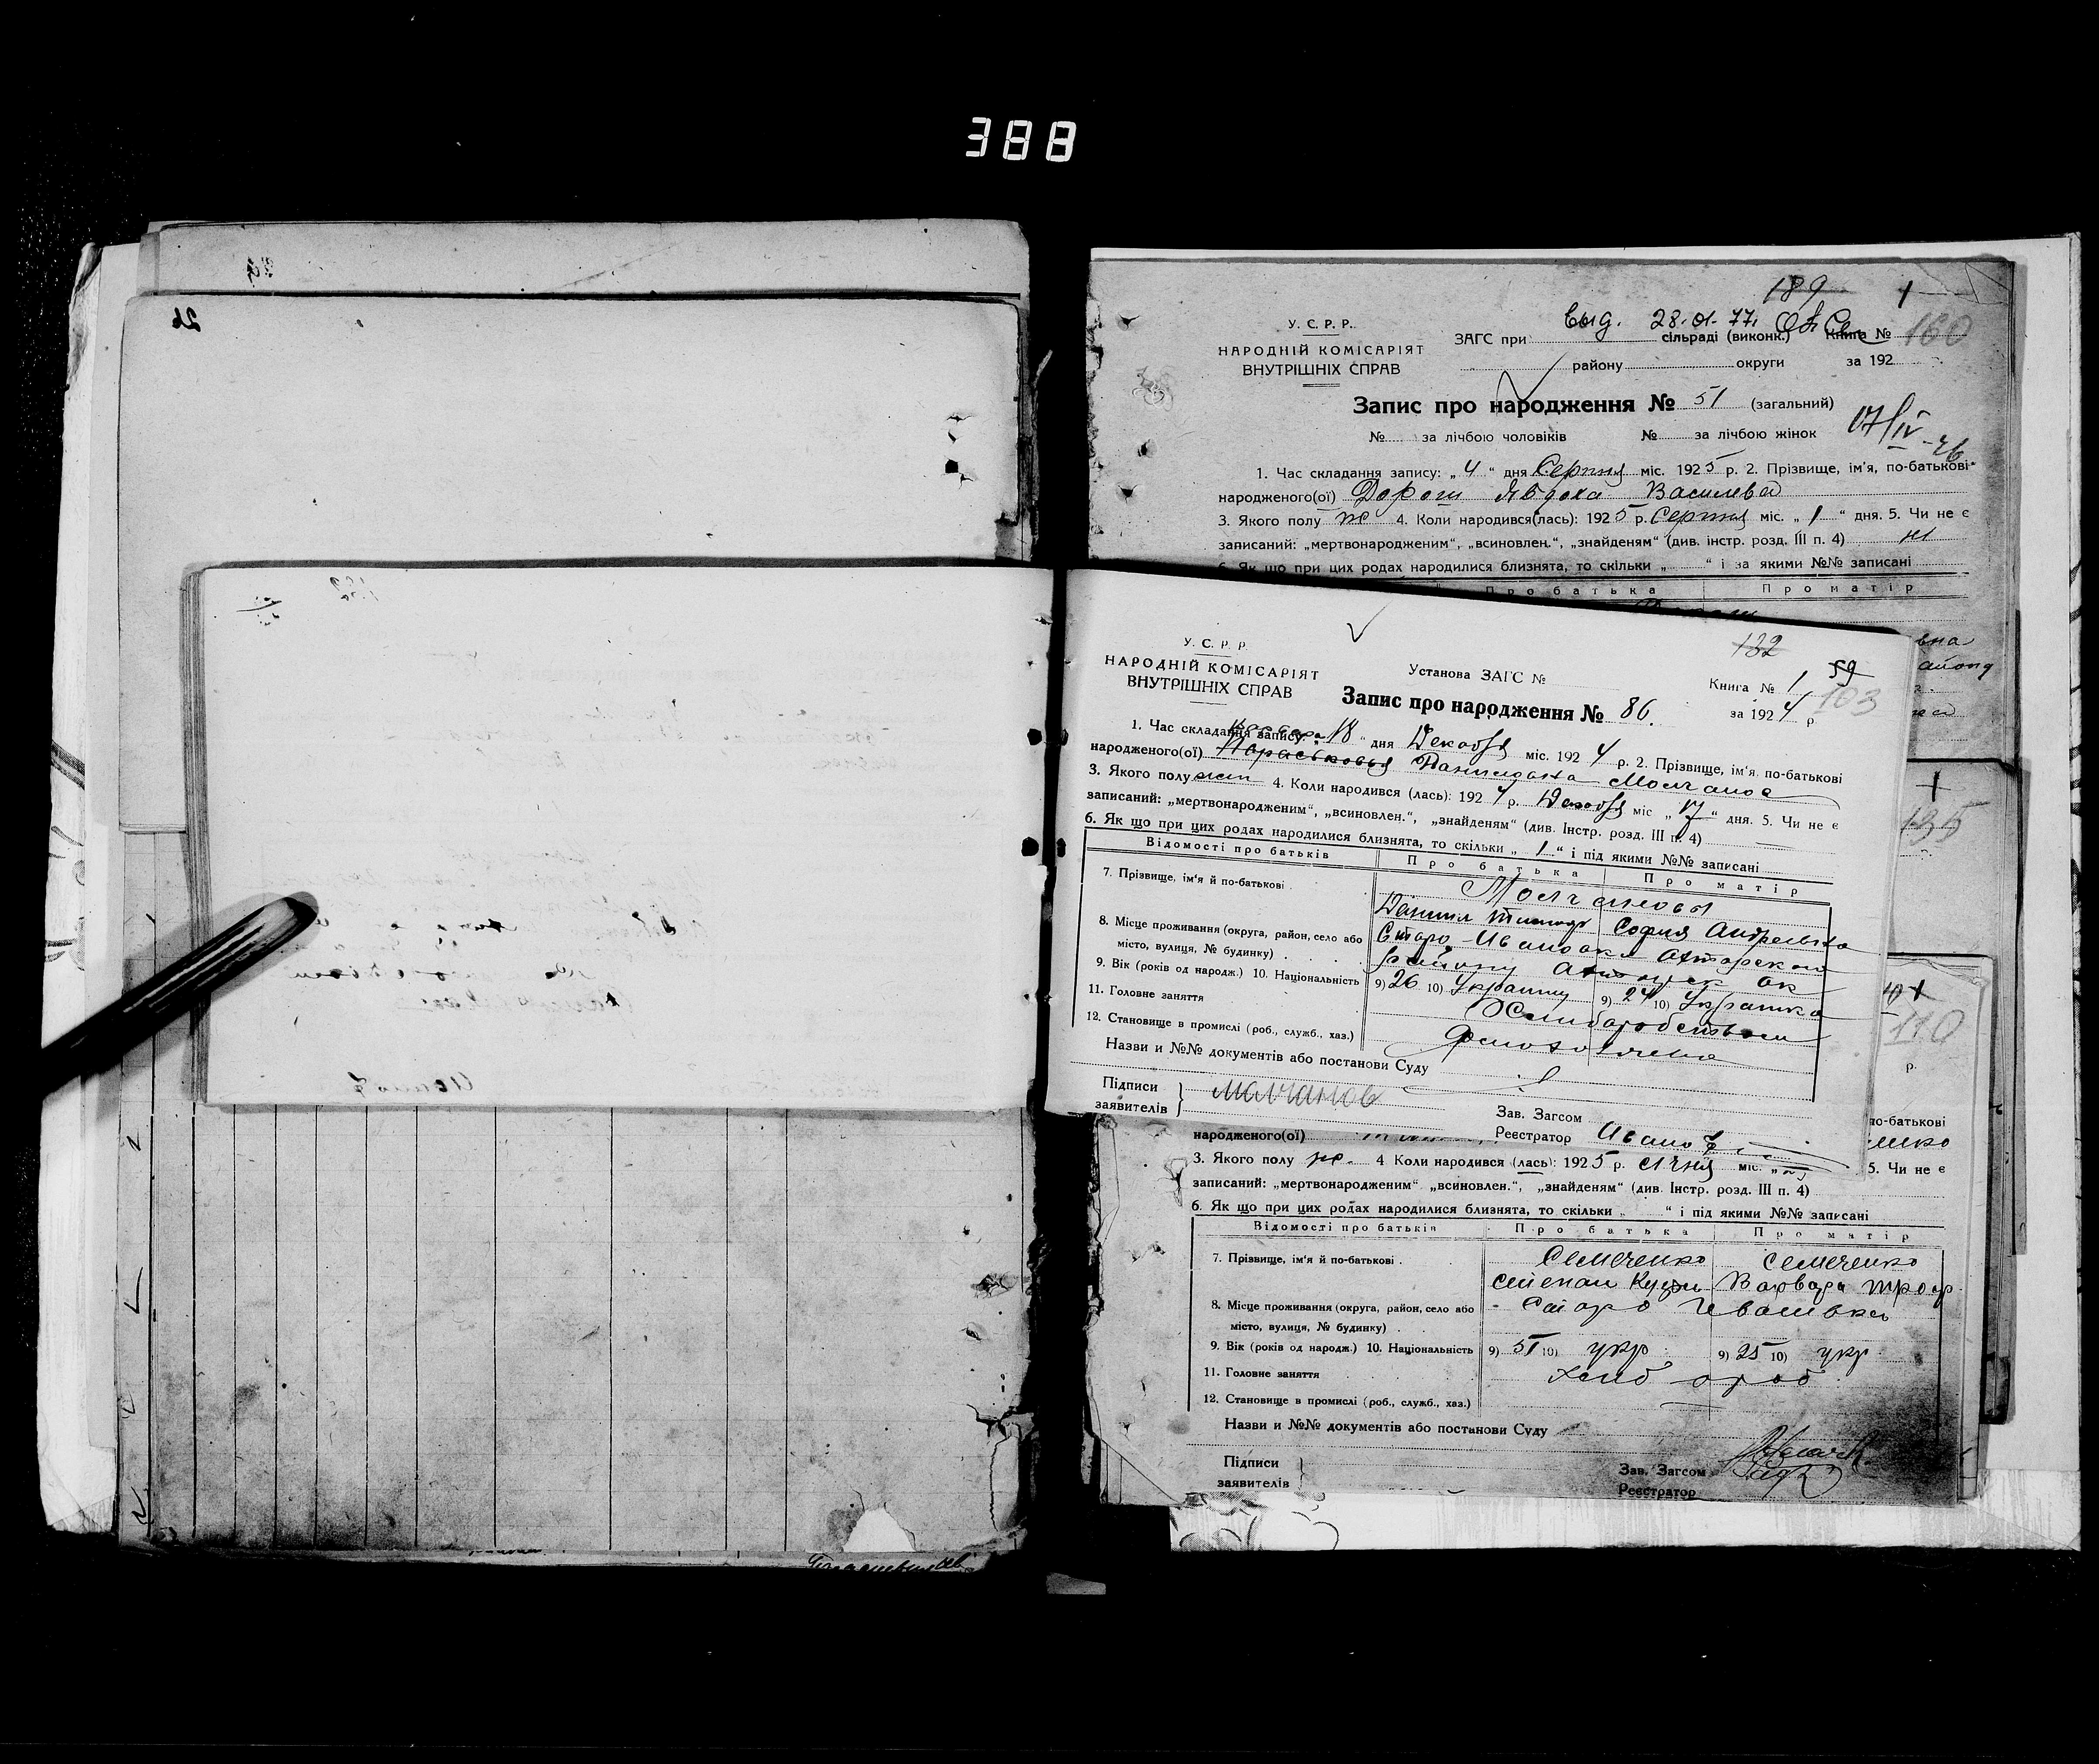 388
26
132
189
1
выд. 28.01.77.
У. С. Р. Р.
НАРОДНІЙ КОМІСАРІЯТ
ВНУТРІШНІХ СПРАВ
ЗАГС при сільраді (виконк.) Книга № 160
району округи за 192
Запис про народження № 51 (загальний)
№ за лічбою чоловіків № за лічбою жінок
17/IV-26
1. Час складання запису: „ 4 “ дня Серпня міс. 1925 р. 2. Прізвище, ім'я, по-батькові
народженого(ої) Явдоха Василева
3. Якого полу ж 4. Коли народився(лась): 1925 р. Серпня міс. „ 1 “ дня. 5. Чи не є
записаний: „мертвонародженим“, „всиновлен.“, „знайденям“ (див. інстр. розд. III п. 4) ні
6. Як що при цих родах народилися близнята, то скільки „ “ і за якими №№ записані
Про батька Про матір
У. С. Р. Р.
НАРОДНІЙ КОМІСАРІЯТ
ВНУТРІШНІХ СПРАВ
Установа ЗАГС №
132
59
Книга № 1
103
Запис про народження № 86.
за 1924 р.
1. Час складання запису: 18 “ дня Декабря міс. 1924 р. 2. Прізвище, ім'я, по-батькові
народженого(ої) Парасковья Даниловна Молчанов
3. Якого полу жен 4. Коли народився (лась): 1924 р. Декабря міс „ 17 “ дня. 5. Чи не є
записаний: „мертвонародженим“, „всиновлен.“, „знайденям“ (див. Інстр. розд. III п. 4)
6. Як що при цих родах народилися близнята, то скільки „ 1 “ і під якими №№ записані
Відомості про батьків Про батька Про матір
7. Прізвище, ім'я й по-батькові Молчановы
Данил Тимоф София Андреевна
8. Місце проживання (округа, район, село або Старо-Ивановка Ахтырского
місто, вулиця, № будинку) району
9. Вік (років од народж.) 10. Національність 9) 26 10) Украинц 9) 24 10) Украинка
11. Головне заняття Хлибаробством
12. Становище в промислі (роб., служб., хаз.)
Назви и №№ документів або постанови Суду
Підписи заявителів Молчанов
Зав. Загсом
Реєстратор Иванов
135
110
р.
по-батькові
народженого(ої)
3. Якого полу ж. 4 Коли народився (лась): 1925 р. січня міс. „ 5. Чи не є
записаний: „мертвонародженим“ „всиновлен.“, „знайденям“ (див. Інстр. розд. III п. 4)
6. Як що при цих родах народилися близнята, то скільки „ “ і під якими №№ записані
Відомості про батьків Про батька Про матір
7. Прізвище, ім'я й по-батькові Семеченко Семеченко
Степан Кузьм Варвара Троф.
8. Місце проживання (округа, район, село або Старо Ивановка
місто, вулиця, № будинку)
9. Вік (років од народж.) 10. Національність 9) 51 10) укр 9) 25 10) укр.
11. Головне заняття хлибороб
12. Становище в промислі (роб., служб., хаз.)
Назви и №№ документів або постанови Суду
Підписи
заявителів
Зав. Загсом
Реєстратор